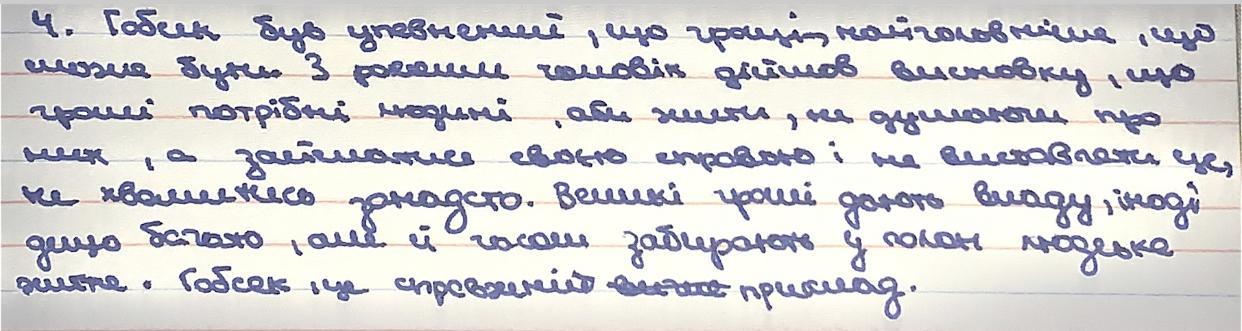 4. Гобсек був упевнений, що гроші, найголовніше, що
може бути. З роками чоловік дійшов висновку, що
гроші потрібні людині, аби жити, не думаючи про
них, а займатися своєю справою і не виставляти це,
не хвалитись занадто. Великі гроші дають владу, іноді
дещо багато, але й часом забирають у полон людське
життє. Гобсек, це справжній приклад.